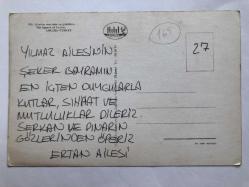 165
27
YILMAZ AİLESİNİN
ŞEKER BAYRAMINI
EN İÇTEN DUYGULARLA
KUTLAR, SIHHAT VE
MUTLULUKLAR DİLERİZ.
SERKAN VE PINARIN
GÖZLERİNDEN ÖPERİZ
ERTAN AİLESİ